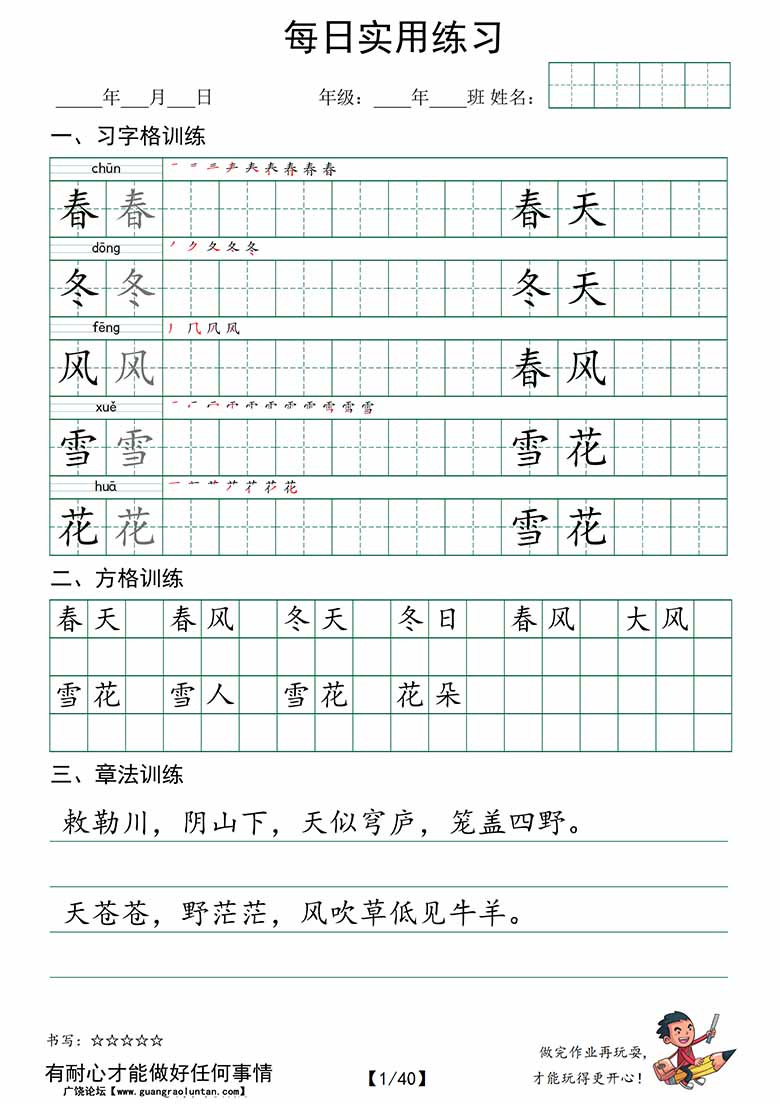 每日实用练习
_____年___月___日 年级：____年____班 姓名：
一、习字格训练
chūn
春 春 春 天
dōng
冬 冬 冬 天
fēng
风 风 春 风
xuě
雪 雪 雪 花
huā
花 花 雪 花
二、方格训练
春天 春风 冬天 冬日 春风 大风
雪花 雪人 雪花 花朵
三、章法训练
敕勒川，阴山下，天似穹庐，笼盖四野。
天苍苍，野茫茫，风吹草低见牛羊。
书写：☆☆☆☆☆
有耐心才能做好任何事情
广饶论坛【www.guangraoluntan.com】
【1/40】
做完作业再玩耍，
才能玩得更开心！